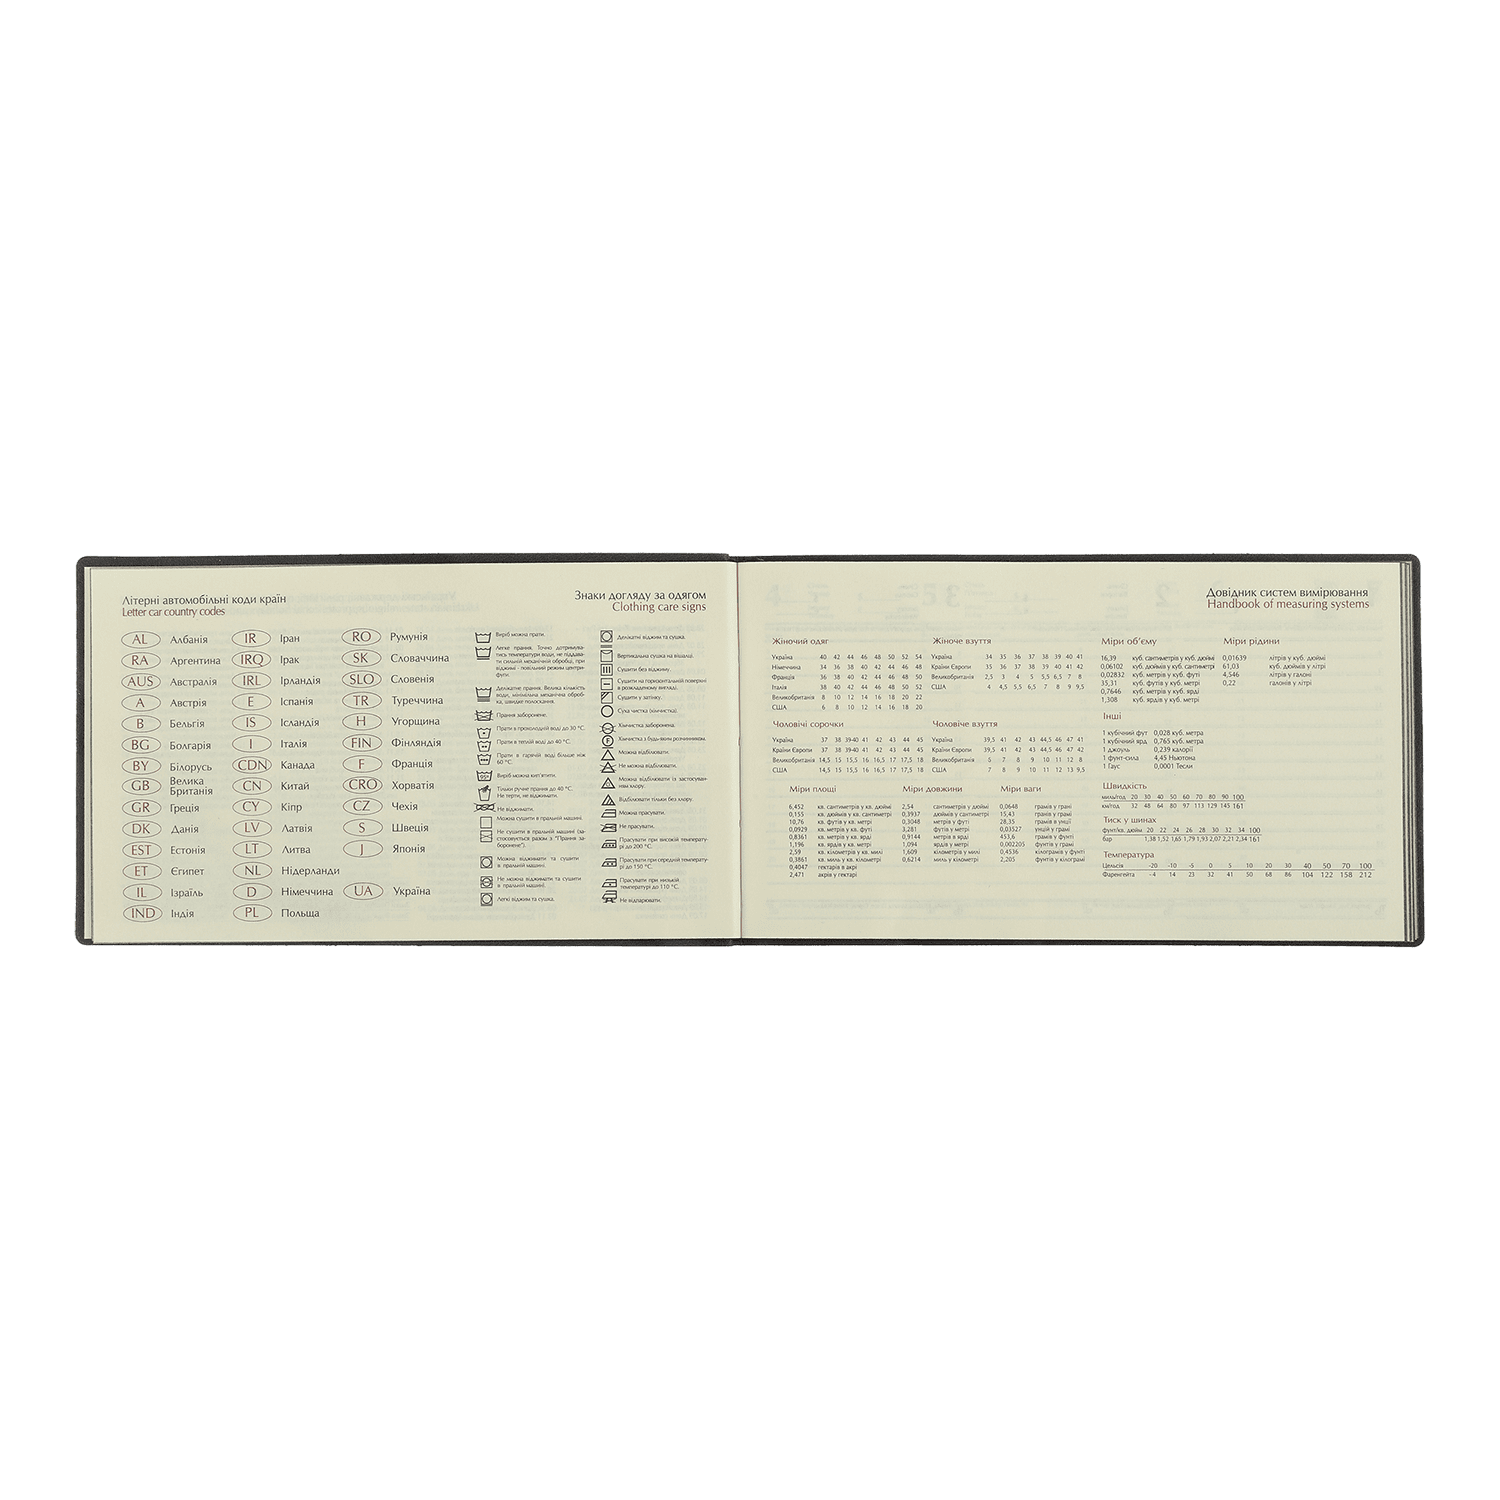 Літерні автомобільні коди країн
Letter car country codes
AL Албанія
RA Аргентина
AUS Австралія
A Австрія
B Бельгія
BG Болгарія
BY Білорусь
GB Велика
Британія
GR Греція
DK Данія
EST Естонія
ET Єгипет
IL Ізраїль
IND Індія
IR Іран
IRQ Ірак
IRL Ірландія
E Іспанія
IS Ісландія
I Італія
CDN Канада
CN Китай
CY Кіпр
LV Латвія
LT Литва
NL Нідерланди
D Німеччина
PL Польща
RO Румунія
SK Словаччина
SLO Словенія
TR Туреччина
H Угорщина
FIN Фінляндія
F Франція
CRO Хорватія
CZ Чехія
S Швеція
J Японія
UA Україна
Знаки догляду за одягом
Clothing care signs
Виріб можна прати.
Легке прання. Точно дотримува-
тись температури води, не піддава-
ти сильній механічній обробці, при
віджимі - повільний режим центри-
фуги.
Делікатне прання. Велика кількість
води, мінімальна механічна оброб-
ка, швидке полоскання.
Прання заборонене.
Прати в прохолодній воді до 30 °C.
Прати в теплій воді до 40 °C.
Прати в гарячій воді більше ніж
60 °C.
Виріб можна кип'ятити.
Тільки ручне прання до 40 °C.
Не терти, не віджимати.
Не віджимати.
Можна сушити в пральній машині.
Не сушити в пральній машині (за-
стосовується разом з "Прання за-
боронене").
Можна віджимати та сушити
в пральній машині.
Не можна віджимати та сушити
в пральній машині.
Легкі віджим та сушка.
Делікатні віджим та сушка.
Вертикальна сушка на вішалці.
Сушити без віджиму.
Сушити на горизонтальній поверхні
в розкладеному вигляді.
Сушити у затінку.
Суха чистка (хімчистка).
Хімчистка заборонена.
Хімчистка з будь-яким розчинником.
Можна відбілювати.
Не можна відбілювати.
Можна відбілювати із застосуван-
ням хлору.
Відбілювати тільки без хлору.
Можна прасувати.
Не прасувати.
Прасувати при високій температу-
рі до 200 °C.
Прасувати при середній температу-
рі до 150 °C.
Прасувати при низькій
температурі до 110 °C.
Не відпарювати.
Довідник систем вимірювання
Handbook of measuring systems
Жіночий одяг
Україна 40 42 44 46 48 50 52 54
Німеччина 34 36 38 40 42 44 46 48
Франція 36 38 40 42 44 46 48 50
Італія 38 40 42 44 46 48 50 52
Великобританія 8 10 12 14 16 18 20 22
США 6 8 10 12 14 16 18 20
Жіноче взуття
Україна 34 35 36 37 38 39 40 41
Країни Європи 35 36 37 38 39 40 41 42
Великобританія 2,5 3 4 5 5,5 6,5 7 8
США 4 4,5 5,5 6,5 7 8 9 9,5
Чоловічі сорочки
Україна 37 38 39-40 41 42 43 44 45
Країни Європи 37 38 39-40 41 42 43 44 45
Великобританія 14,5 15 15,5 16 16,5 17 17,5 18
США 14,5 15 15,5 16 16,5 17 17,5 18
Чоловіче взуття
Україна 39,5 41 42 43 44,5 46 47 41
Країни Європи 39,5 41 42 43 44,5 46 47 42
Великобританія 6 7 8 9 10 11 12 8
США 7 8 9 10 11 12 13 9,5
Міри площі
6,452 кв. сантиметрів у кв. дюймі
0,155 кв. дюймів у кв. сантиметрі
10,76 кв. футів у кв. метрі
0,0929 кв. метрів у кв. футі
0,8361 кв. метрів в кв. ярді
1,196 кв. ярдів у кв. метрі
2,59 кв. кілометрів у кв. милі
0,3861 кв. миль у кв. кілометрі
0,4047 гектарів в акрі
2,471 акрів у гектарі
Міри довжини
2,54 сантиметрів у дюймі
0,3937 дюймів у сантиметрі
0,3048 метрів у футі
3,281 футів у метрі
0,9144 метрів в ярді
1,094 ярдів у метрі
1,609 кілометрів у милі
0,6214 миль у кілометрі
Міри ваги
0,0648 грамів у грані
15,43 гранів у грамі
28,35 грамів в унції
0,03527 унцій у грамі
453,6 грамів у фунті
0,002205 фунтів у грамі
0,4536 кілограмів у фунті
2,205 фунтів у кілограмі
Міри об'єму
16,39 куб. сантиметрів у куб. дюймі
0,06102 куб. дюймів у куб. сантиметрі
0,02832 куб. метрів у куб. футі
35,31 куб. футів у куб. метрі
0,7646 куб. метрів у куб. ярді
1,308 куб. ярдів у куб. метрі
Міри рідини
0,01639 літрів у куб. дюймі
61,03 куб. дюймів у літрі
4,546 літрів у галоні
0,22 галонів у літрі
Інші
1 кубічний фут 0,028 куб. метра
1 кубічний ярд 0,765 куб. метра
1 джоуль 0,239 калорії
1 фунт-сила 4,45 Ньютона
1 Гаус 0,0001 Тесли
Швидкість
миль/год 20 30 40 50 60 70 80 90 100
км/год 32 48 64 80 97 113 129 145 161
Тиск у шинах
фунт/кв. дюйм 20 22 24 26 28 30 32 34 100
бар 1,38 1,52 1,65 1,79 1,93 2,07 2,21 2,34 161
Температура
Цельсія -20 -10 -5 0 5 10 20 30 40 50 70 100
Фаренгейта -4 14 23 32 41 50 68 86 104 122 158 212